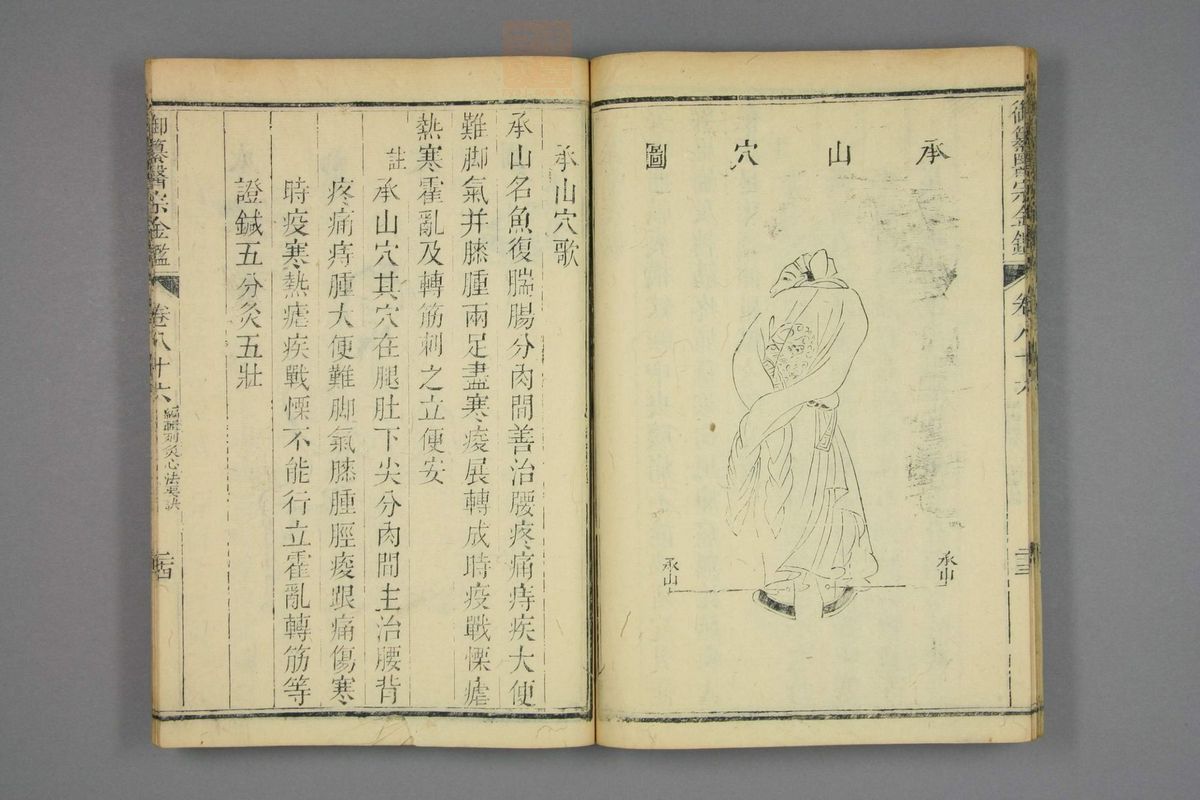 御纂醫宗金鑑 卷八十六
承山穴圖
承山
承山
承山穴歌
承山名魚復腨腸分肉間善治腰疼痛痔疾大便
難脚氣并膝腫兩足盡寒痠展轉成時疫戰慄瘧
熱寒霍亂及轉筋刺之立便安
註
承山穴其穴在腿肚下尖分肉間主治腰背
疼痛痔腫大便難脚氣膝腫脛痠跟痛傷寒
時疫寒熱瘧疾戰慄不能行立霍亂轉筋等
證鍼五分灸五壯
御纂醫宗金鑑 卷八十六 編輯刺灸心法要訣 二十四